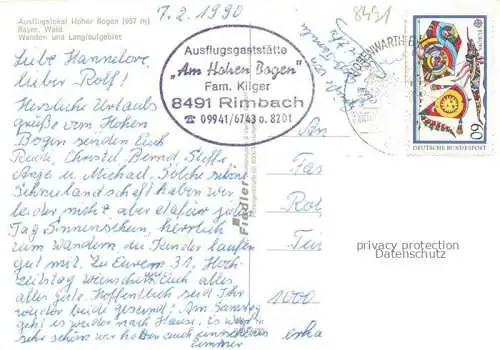 Ausflugslokal Hoher Bogen (957 m)
Bayer. Wald
Wander- und Langlaufgebiet
7.2.1990
8491
Ausflugsgaststätte
"Am Hohen Bogen"
Fam. Kilger
8491 Rimbach
☎ 09941/6743 o. 8201
EUROPA
60
DEUTSCHE BUNDESPOST
Liebe Hannelore,
lieber Rolf!
Herzliche Urlaubs
grüße vom Hohen
Bogen senden Euch
Christel, Bernd, Steffi
Anja u. Michael. Solche schöne
Schneelandschaft haben wir
leider nicht, aber dafür jeden
Tag Sonnenschein, herrlich
zum Wandern. die Kinder laufen
gut mit. Zu Eurem 31. Hoch-
zeitstag wünschen wir Euch alles
alles Gute. Hoffentlich seid Ihr
wieder beide gesund! Am Samstag
geht es wieder nach Hause, es war
sehr schön wir haben auch ein schönes
Zimmer
Fiedler
An
Fa
Rol
1000
privacy protection
Datenschutz